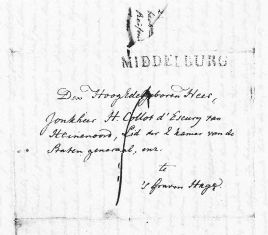 MIDDELBURG
Den Hoog Edelgeboren Heer,
Jonkheer H. Collot d'Escury van
Heinenoord, Lid der 2 kamer van de
Staten generaal, enz.
te
's Graven Hage